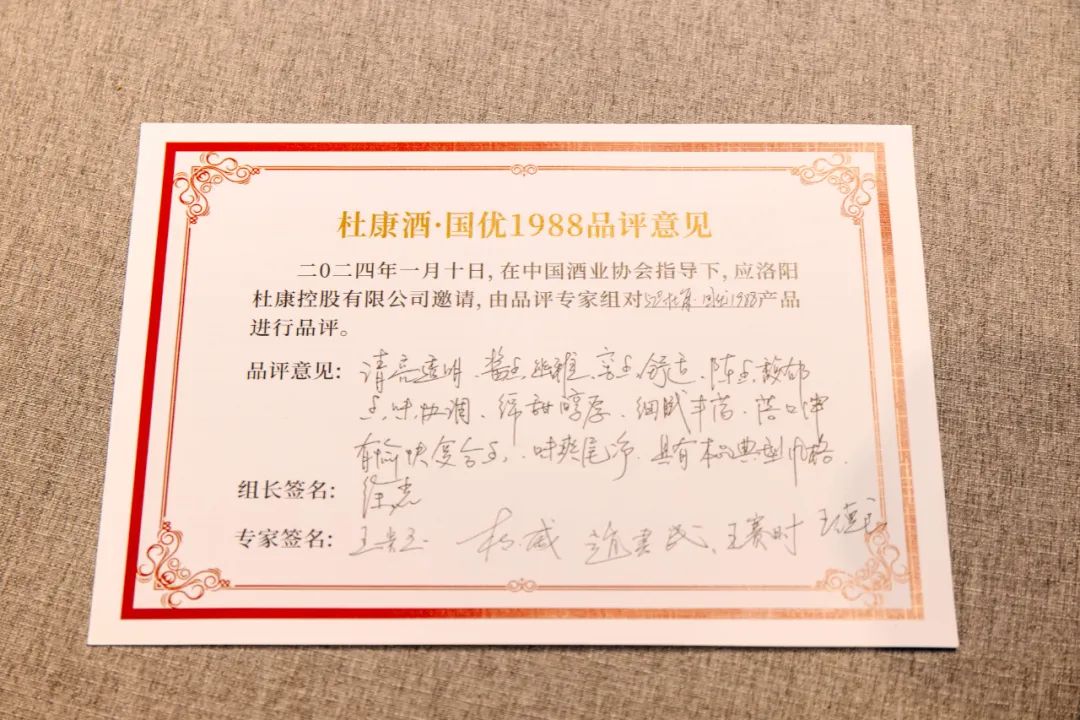 杜康酒·国优1988品评意见
二〇二四年一月十日,在中国酒业协会指导下,应洛阳
杜康控股有限公司邀请,由品评专家组对杜康·国优1988产品
进行品评。
品评意见: 清亮透明、酱香幽雅、窖香舒适、陈香馥郁
香味协调、绵甜醇厚、细腻丰富、落口中
有愉快复合香、味爽尾净、具有本品典型风格.
组长签名:
专家签名: 杨威 王赛时 王德